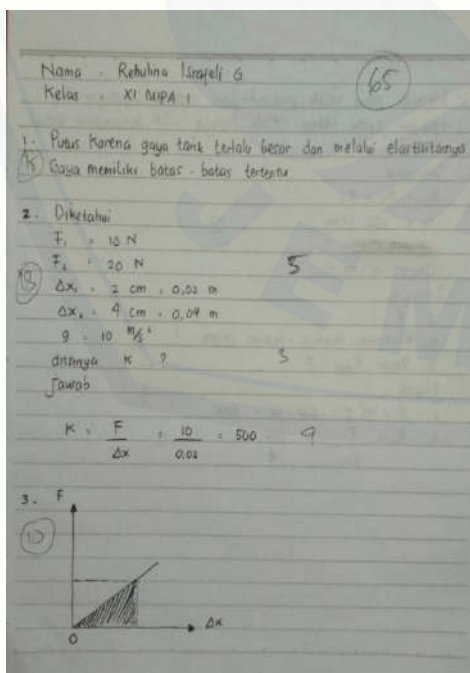 Nama : Rehulina Israfeli G
65
Kelas : XI MIPA 1
1. Putus Karena gaya tarik terlalu besar dan melalui elastisitasnya
Gaya memiliki batas - batas tertentu
2. Diketahui
F₁ = 10 N
F₂ = 20 N
5
Δx₁ = 2 cm = 0,02 m
Δx₂ = 4 cm = 0,04 m
g = 10 m/s²
ditanya K ?
3
Jawab
K = F/Δx = 10/0,02 = 500
9
3. F
Δx
0